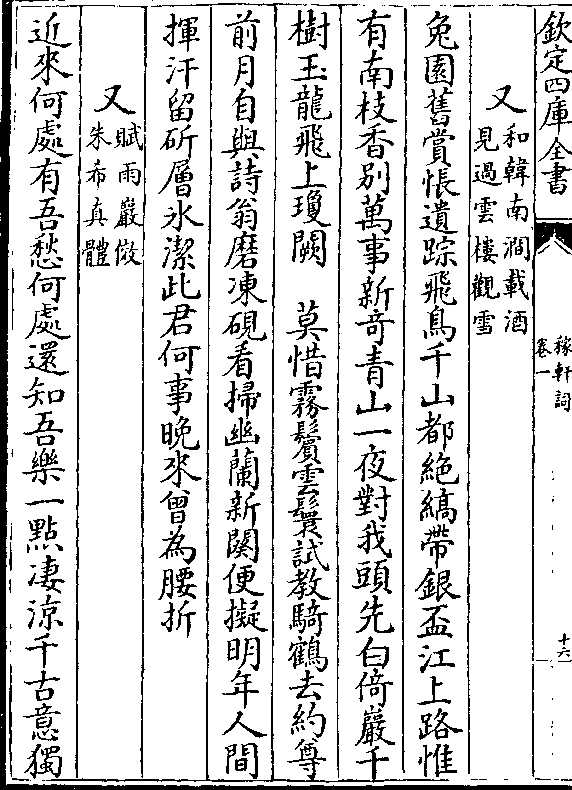 欽定四庫全書
稼軒詞
卷一
十六
又和韓南澗載酒
見過雲樓觀雪
兔園舊賞悵遺踪飛鳥千山都絶縞帶銀盃江上路惟
有南枝香别萬事新奇青山一夜對我頭先白倚巖千
樹玉龍飛上瓊闕　莫惜霧鬢雲鬟試教騎鶴去約尊
前月自與詩翁磨凍硯看掃幽蘭新闋便擬明年人間
揮汗留斫層氷潔此君何事晩來曾為腰折
又賦雨巖傚
朱希真體
近來何處有吾愁何處還知吾樂一點凄涼千古意獨